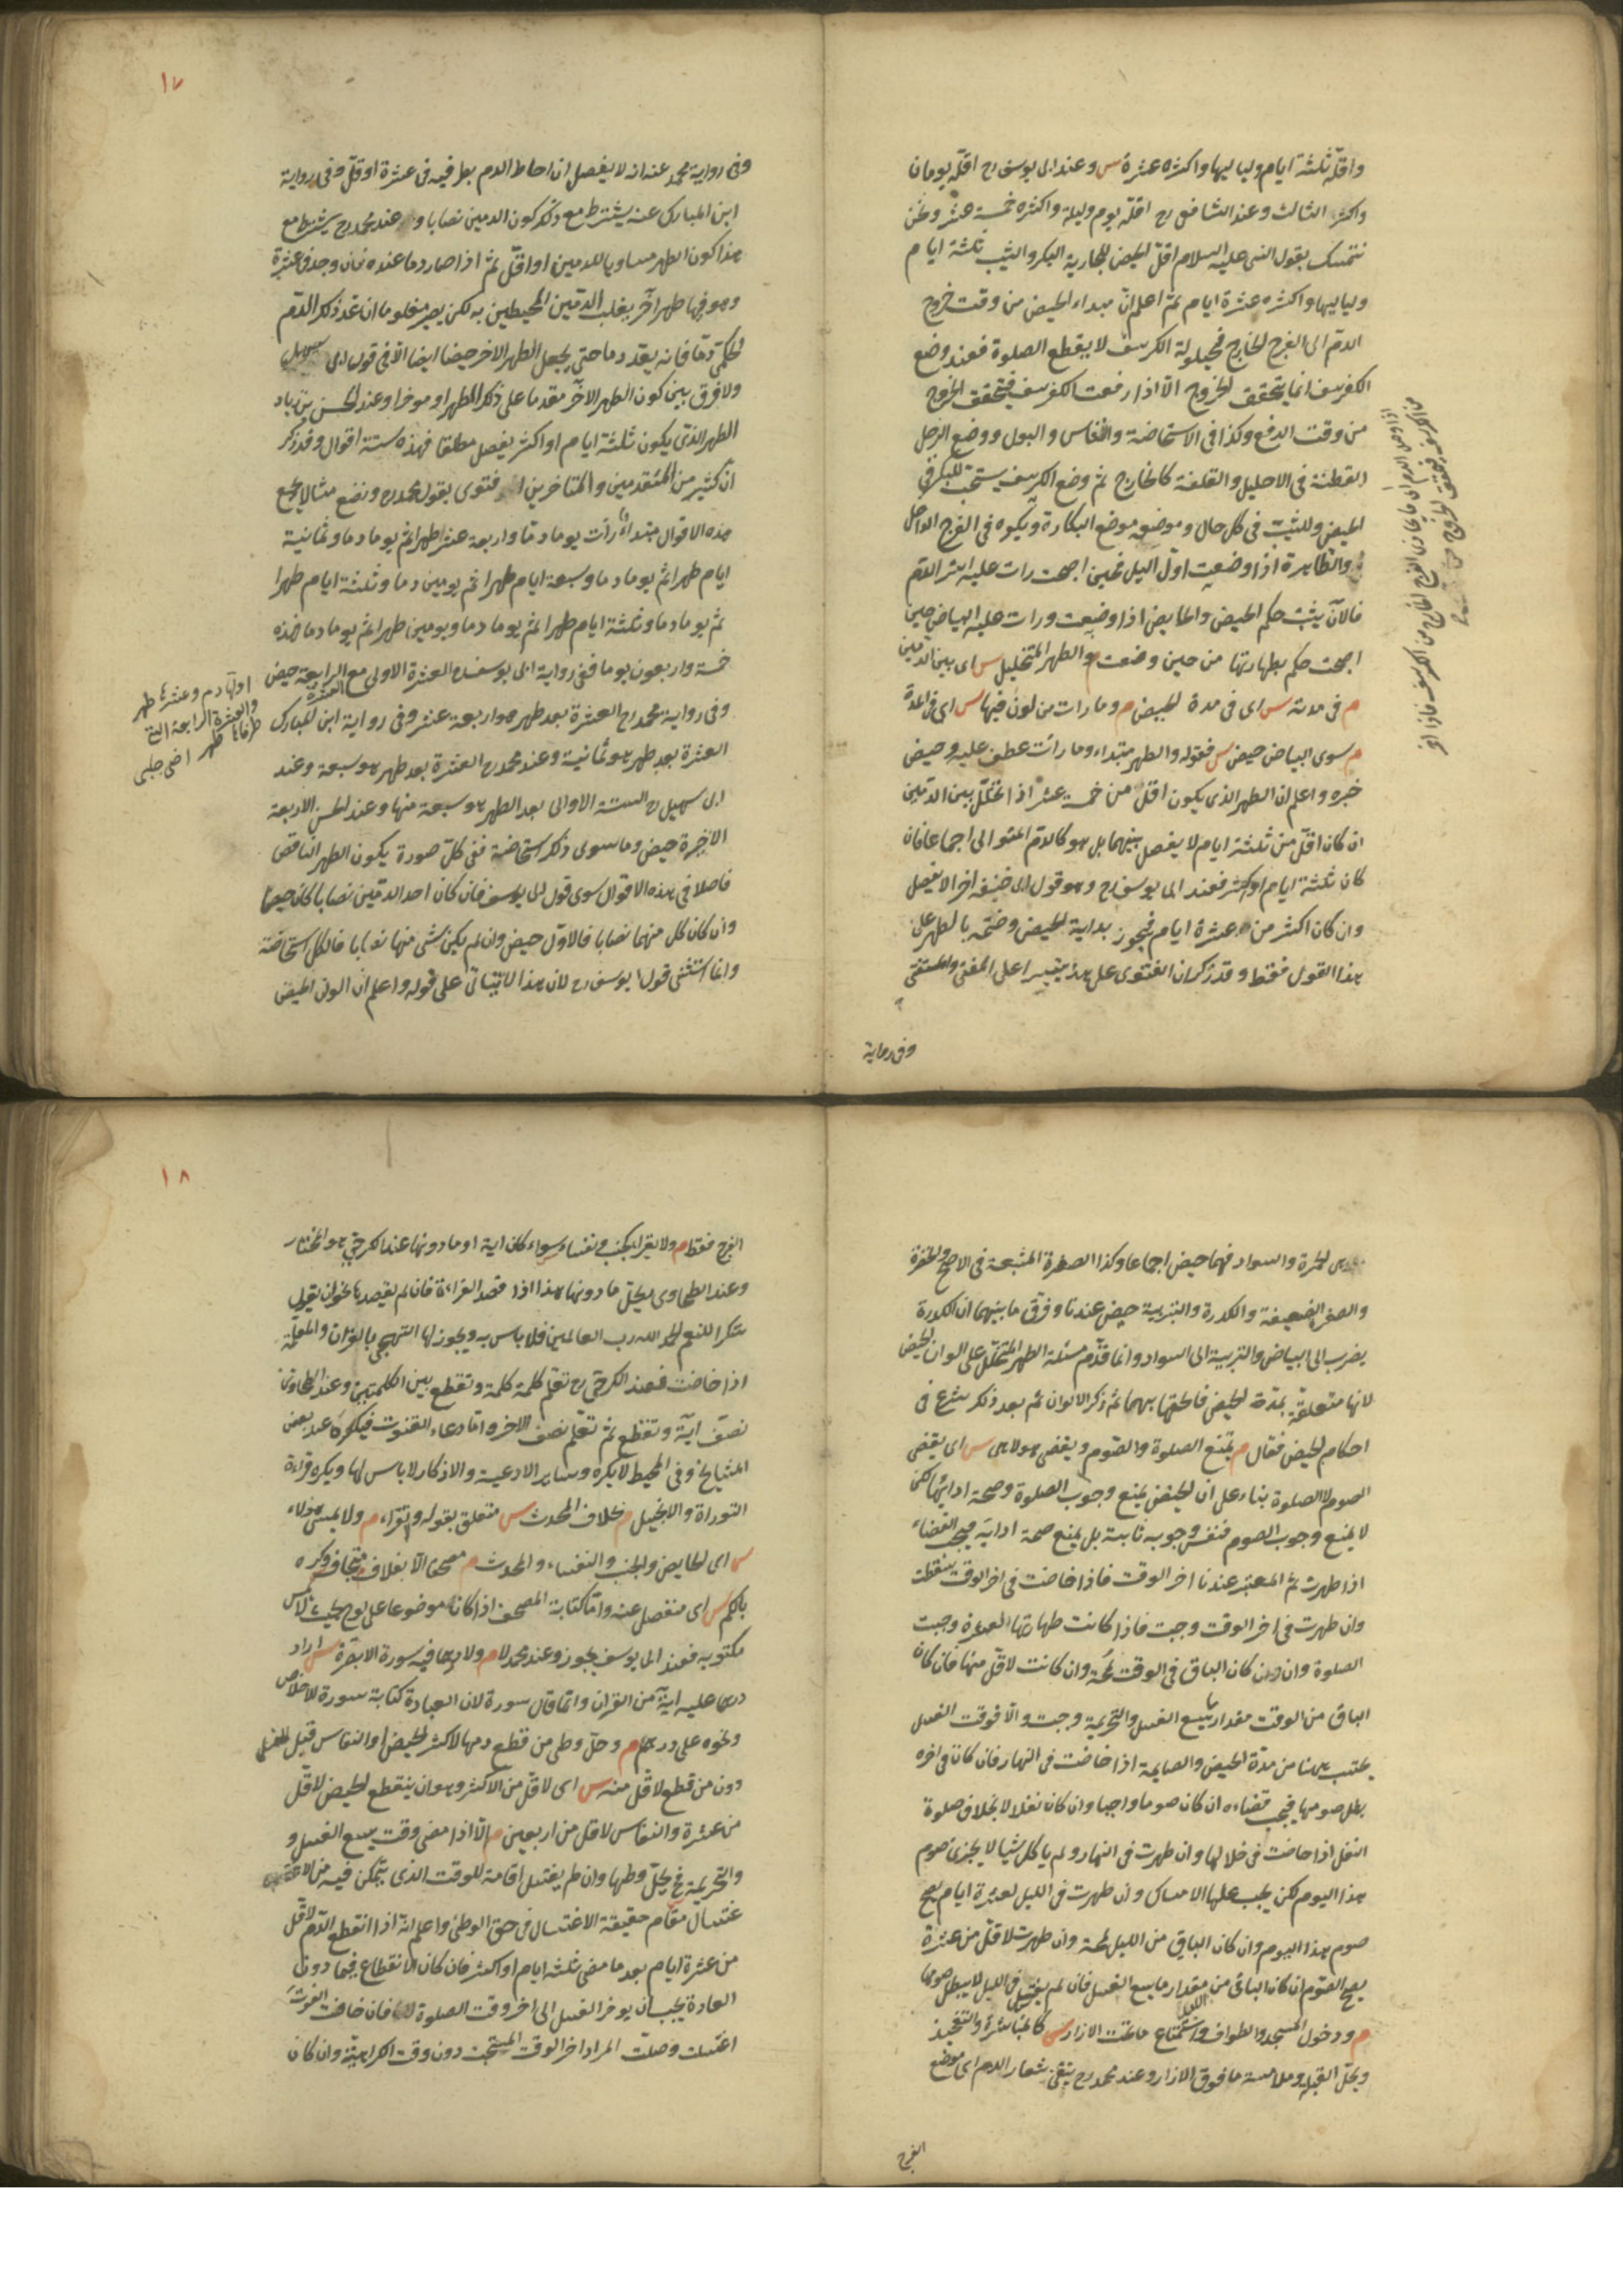 واقلّه ثلثة ايام ولياليها واكثره عشرة س وعند ابى يوسف رح اقلّه يومان
واكثر الثالث وعند الشافعى رح اقلّه يوم وليلة واكثره خمسة عشر ونحن
نتمسك بقول النبى عليه السلام اقلّ الحيض للجارية البكر والثيب ثلثة ايام
ولياليها واكثره عشرة ايام ثمّ اعلم انّ مبداء الحيض من وقت خروج
الدم الى الفرج الخارج فحيلولة الكرسف لا يقطع الصلوة فعند وضع
الكرسف انما يتحقق الخروج الّا اذا رفعت الكرسف فيتحقق الخروج
من وقت الرفع وكذا فى الاستحاضة والنفاس والبول ووضع الرجل
القطنة فى الاحليل والقلفة كالخارج ثمّ وضع الكرسف يستحبّ للبكر فى
الحيض وللثيب فى كل حال وموضعه موضع البكارة ويكره فى الفرج الداخل
والطاهرة اذا وضعت اوّل الليل فحين اصبحت رات عليه اثر الدم
فالآن يثبت حكم الحيض والحايض اذا وضعت ورات عليه البياض حين
اصبحت حكم بطهارتها من حين وضعت م والطهر المتخلّل س اى بين الدمين
م فى مدته س اى فى مدة الحيض م وما رات من لون فيها س اى فى المدة
م سوى البياض حيض س فقوله والطهر مبتداء وما رأت عطف عليه وحيض
خبره واعلم ان الطهر الذى يكون اقلّ من خمسة عشر اذا تخلّل بين الدمين
ان كان اقلّ من ثلثة ايام لا يفصل بينهما بل هو كالدم المتوالى اجماعا فان
كان ثلثة ايام او اكثر فعند ابى يوسف رح وهو قول ابى حنيفة اخرا لا يفصل
وان كان اكثر من عشرة ايام فيجوز بداية الحيض وختمه بالطهر على
هذا القول فقط وقد ذكر ان الفتوى على هذا تيسيرا على المفتى والمستفتى
وفى رواية
١٧
وفى رواية محمد عنه انه لا يفصل ان احاط الدم بطرفيه فى عشرة او اقلّ وفى رواية
ابن المبارك عنه يشترط مع ذلك كون الدمين نصابا وعند محمد رح يشترط مع
هذا كون الطهر مساويا للدمين او اقلّ ثمّ اذا صار دما عنده فان وجد فى عشرة
وهو فيها طهر آخر يغلب الدمين المحيطين به لكن يصير مغلوبا ان عد ذلك الدم
الحكمى دمّا فانه يعدّ دما حتى يجعل الطهر الاخر حيضا ايضا الّا فى قول ابى سهيل
ولا فرق بين كون الطهر الآخر مقدما على ذلك الطهر او موخرا وعند الحسن بن زياد
الطهر الذى يكون ثلثة ايام او اكثر يفصل مطلقا فهذه ستة اقوال وقد ذكر
انّ كثير من المتقدمين والمتاخرين افتوى بقول محمد رح ونضع مثالا يجمع
هذه الاقوال مبتداة رأت يوما دمّا واربعة عشر طهرا ثم يوما دما وثمانية
ايام طهرا ثمّ يوما دما وسبعة ايام طهرا ثم يومين دما وثلثة ايام طهرا
ثمّ يوما دما وثلثة ايام طهرا ثمّ يوما دما ويومين طهرا ثمّ يوما دما فهذه
خمسة واربعون يوما ففى رواية ابى يوسف رح العشرة الاولى مع العشرة الرابعة حيض
وفى رواية محمد رح العشرة بعد طهر هو اربعة عشر وفى رواية ابن المبارك
العشرة بعد طهر هو ثمانية وعند محمد رح العشرة بعد طهر هو سبعة وعند
ابى سهيل رح الستة الاولى بعد الطهر هو سبعة منها وعند الحسن الاربعة
الاخيرة حيض وما سوى ذلك استحاضة ففى كلّ صورة يكون الطهر الناقص
فاصلا فى هذه الاقوال سوى قول ابى يوسف فان كان احد الدمين نصابا كان حيضا
وان كان كل منهما نصابا فالاوّل حيض وان لم يكن شى منها نصابا فالكل استحاضة
وانما استثنى قول ابى يوسف رح لان هذا لا يتاتى على قوله واعلم انّ الوان الحيض
اولها دم وعشرها طهر
والعشرة الرابعة التى
طرفاها طهر اخى چلبى
س الحمرة والسواد فهما حيض اجماعا وكذا الصفرة المشبعة فى الاصح والخضرة
والصفرة الضعيفة والكدرة والتربية حيض عندنا وفرّق ما بينهما ان الكدرة
يضرب الى البياض والتربية الى السواد وانما قدّم مسئلة الطهر المتخلّل على الوان الحيض
لانها متعلقة بمدّة الحيض فالحقها بهما ثمّ ذكر الالوان ثمّ بعد ذلك شرع فى
احكام الحيض فقال م تمنع الصلوة والصوم ويقضى هو لا هى س اى يقضى
الصوم لا الصلوة بناء على انّ الحيض يمنع وجوب الصلوة وصحة ادائها لكن
لا يمنع وجوب الصوم فنفس وجوبه ثابتة بل يمنع صحة ادائه فيجب القضاء
اذا طهرت ثمّ المعتبر عندنا اخر الوقت فاذا حاضت فى اخر الوقت سقطت
وان طهرت فى اخر الوقت وجبت فاذا كانت طهارتها لعشرة وجبت
الصلوة وان كان الباقى فى الوقت لمحة وان كانت لاقلّ منها فان كان
الباقى من الوقت مقدار ما يسع الغسل والتحريمة وجبت والّا فوقت الغسل
يحتسب هنا من مدّة الحيض والصايمة اذا حاضت فى النهار فان كان فى اخره
بطل صومها فيجب قضاءه ان كان صوما واجبا وان كان نفلا لا بخلاف صلوة
النفل اذا حاضت فى خلالها وان طهرت فى النهار ولم ياكل شيا لا يجزى صوم
هذا اليوم لكن يجب عليها الامساك وان طهرت فى الليل لعشرة ايام يصح
صوم هذا اليوم وان كان الباقى من الليل لمحة وان طهرت لاقلّ من عشرة
يصح الصوم ان كان الباقى من الليل مقدار ما يسع الغسل فان لم يغتسل فى الليل لا يبطل صومها
م ودخول المسجد والطواف واستمتاع ما تحت الازار س كالمباشرة والتفخيذ
ويحلّ القبلة وملامسة ما فوق الازار وعند محمد رح يتقى شعار الدم اى موضع
الفرج
١٨
الفرج فقط م ولا يقرأ الجنب ونفساء سواء كان اية او ما دونها عند الكرخى هو المختار
وعند الطحاوى يحلّ ما دونها هذا اذا قصد القراءة فان لم يقصدها نحو ان يقول
شكرا للنعم الحمد لله رب العالمين فلا باس به ويجوز لها التهجى بالقران والمعلّمة
اذا حاضت فعند الكرخى رح تعلّم كلمة كلمة وتقطع بين الكلمتين وعند الطحاوى
نصف اية وتقطع ثمّ تعلّم نصف الاخر وامّا دعاء القنوت فيكره عند بعض
المشايخ وفى المحيط لا يكره وساير الادعية والاذكار لا باس لها ويكره قراءة
التوراة والانجيل م بخلاف المحدث س متعلق بقوله ولا تقراء م ولا يمسّ هؤلاء
س اى الحايض والجنب والنفساء والمحدث م مصحفا الّا بغلاف متجاف وكره
بالكمّ س اى منفصل عنه وامّا كتابة المصحف اذا كان موضوعا على لوح بحيث لا يمس
مكتوبه فعند ابى يوسف يجوز وعند محمد لا م ولا درهما فيه سورة الا بصرّة س اراد
درهما عليه اية من القران وانما قال سورة لان العبادة كتابة سورة الاخلاص
ونحوه على درهم م وحلّ وطى من قطع دمها لاكثر الحيض او النفاس قبل الغسل
دون من قطع لاقلّ منه س اى لاقلّ من الاكثر وهو ان ينقطع الحيض لاقلّ
من عشرة والنفاس لاقلّ من اربعين م الّا اذا مضى وقت يسع الغسل و
والتحريمة فح يحلّ وطيها وان لم يغتسل اقامة للوقت الذى يتمكن فيه من الا
غتسال مقام حقيقة الاغتسال فى حق الوطئ واعلم انّه اذا انقطع الدّم لاقلّ
من عشرة ايام بعد ما مضى ثلثة ايام او اكثر فان كان الانقطاع فيما دون
العادة يجب ان يوخر الغسل الى اخر وقت الصلوة فان خافت الفوت
اغتسلت وصلّت المراد اخر الوقت المستحبّ دون وقت الكراهية وان كان